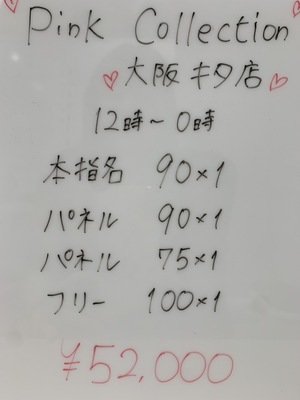 Pink Collection
大阪キタ店
12時～0時
本指名 90×1
パネル 90×1
パネル 75×1
フリー 100×1
¥52,000